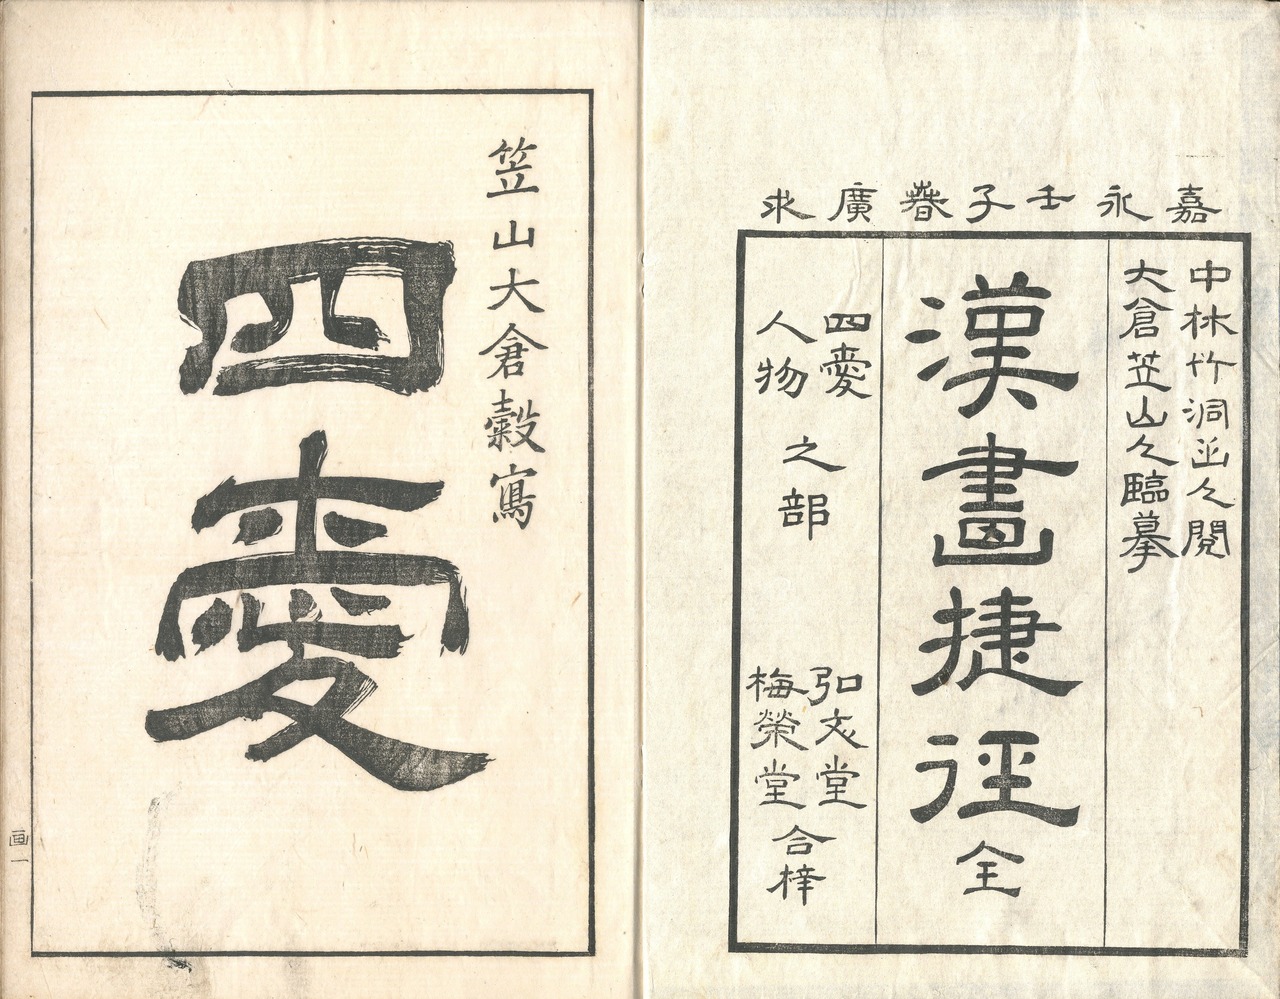 嘉永壬子春廣求
中林竹洞函人閱
大倉笠山人臨摹
漢畫捷徑全
四愛
人物
之部
弘文堂
梅榮堂
合梓
笠山大倉穀寫
四愛
画一